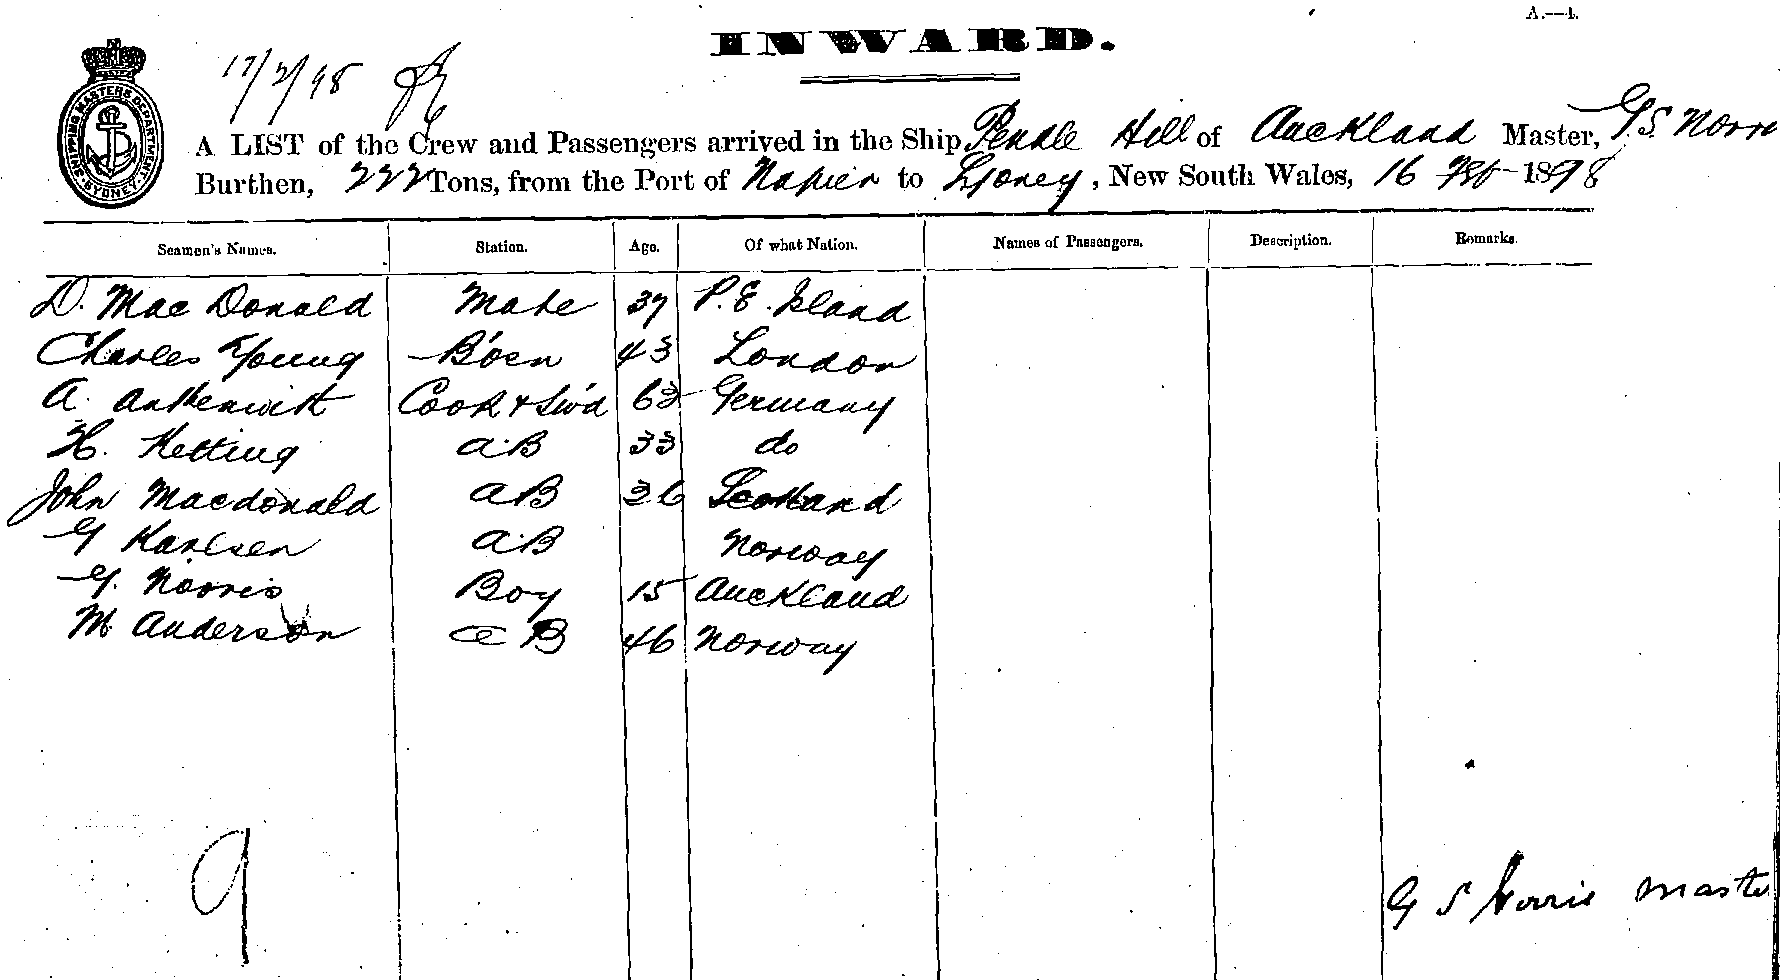 A.—4.
INWARD.
17/2/98
SHIPPING MASTERS DEPARTMENT SYDNEY
A LIST of the Crew and Passengers arrived in the Ship Pendle Hill of Auckland Master, G.S. Norri
Burthen, 222 Tons, from the Port of Napier to Sydney, New South Wales, 16 Feb 1898
Seamen's Names. Station. Age. Of what Nation. Names of Passengers. Description. Remarks.
D. Mac Donald Mate 37 P.E. Island
Charles Young Bo'sn 43 London
A. Cook & Stw'd 63 Germany
H. Ketting A.B 33 do
John Macdonald AB 26 Scotland
G Karlsen A.B Norway
G. Norris Boy 15 Auckland
M Anderson AB 46 Norway
9
G S Norris Maste